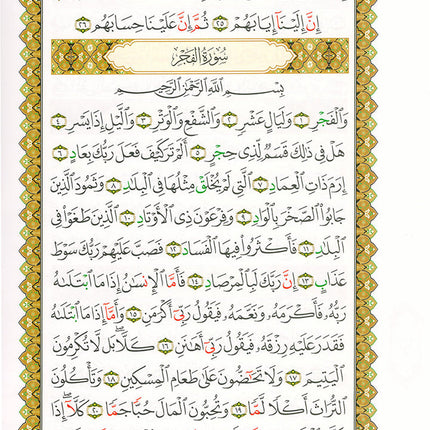 إِنَّ إِلَيْنَآ إِيَابَهُمْ ٢٥ ثُمَّ إِنَّ عَلَيْنَا حِسَابَهُم ٢٦
سُورَةُ الفَجْرِ
بِسْمِ ٱللَّهِ ٱلرَّحْمَٰنِ ٱلرَّحِيمِ
وَٱلْفَجْرِ ١ وَلَيَالٍ عَشْرٍ ٢ وَٱلشَّفْعِ وَٱلْوَتْرِ ٣ وَٱلَّيْلِ إِذَا يَسْرِ ٤
هَلْ فِى ذَٰلِكَ قَسَمٌ لِّذِى حِجْرٍ ٥ أَلَمْ تَرَ كَيْفَ فَعَلَ رَبُّكَ بِعَادٍ ٦
إِرَمَ ذَاتِ ٱلْعِمَادِ ٧ ٱلَّتِى لَمْ يُخْلَقْ مِثْلُهَا فِى ٱلْبِلَٰدِ ٨ وَثَمُودَ ٱلَّذِينَ
جَابُوا۟ ٱلصَّخْرَ بِٱلْوَادِ ٩ وَفِرْعَوْنَ ذِى ٱلْأَوْتَادِ ١٠ ٱلَّذِينَ طَغَوْا۟ فِى
ٱلْبِلَٰدِ ١١ فَأَكْثَرُوا۟ فِيهَا ٱلْفَسَادَ ١٢ فَصَبَّ عَلَيْهِمْ رَبُّكَ سَوْطَ
عَذَابٍ ١٣ إِنَّ رَبَّكَ لَبِٱلْمِرْصَادِ ١٤ فَأَمَّا ٱلْإِنسَٰنُ إِذَا مَا ٱبْتَلَىٰهُ
رَبُّهُۥ فَأَكْرَمَهُۥ وَنَعَّمَهُۥ فَيَقُولُ رَبِّىٓ أَكْرَمَنِ ١٥ وَأَمَّآ إِذَا مَا ٱبْتَلَىٰهُ
فَقَدَرَ عَلَيْهِ رِزْقَهُۥ فَيَقُولُ رَبِّىٓ أَهَٰنَنِ ١٦ كَلَّا بَل لَّا تُكْرِمُونَ
ٱلْيَتِيمَ ١٧ وَلَا تَحَٰٓضُّونَ عَلَىٰ طَعَامِ ٱلْمِسْكِينِ ١٨ وَتَأْكُلُونَ
ٱلتُّرَاثَ أَكْلًا لَّمًّا ١٩ وَتُحِبُّونَ ٱلْمَالَ حُبًّا جَمًّا ٢٠ كَلَّآ إِذَا